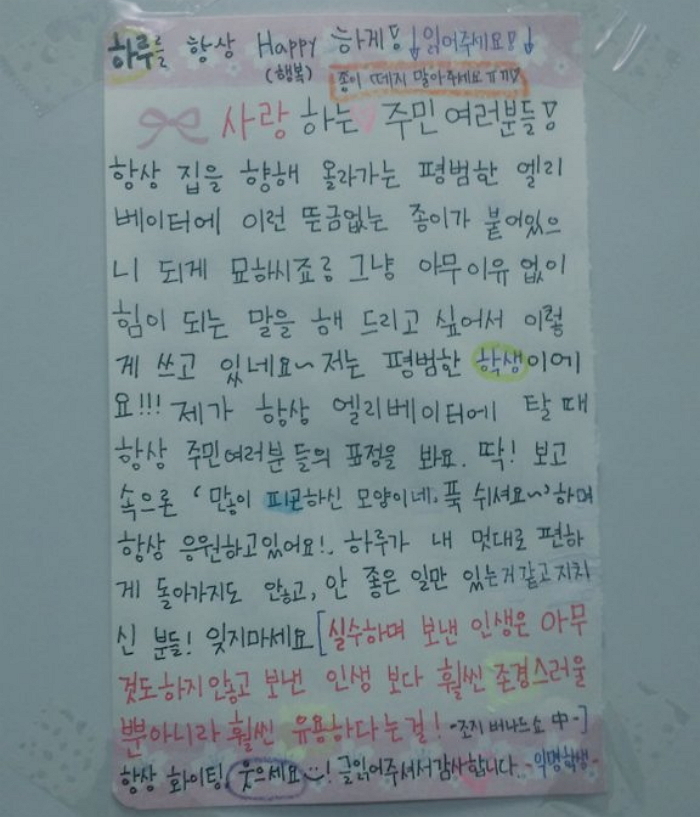 하루를 항상 Happy 하게! ↓읽어주세요!↓
(행복) 종이 떼지 말아주세요ㅠㅠ!
사랑하는♥ 주민여러분들!
항상 집을 향해 올라가는 평범한 엘리
베이터에 이런 뜬금없는 종이가 붙어있으
니 되게 묘하시죠? 그냥 아무이유 없이
힘이 되는 말을 해 드리고 싶어서 이렇
게 쓰고 있네요~ 저는 평범한 학생이에
요!!! 제가 항상 엘리베이터에 탈 때
항상 주민여러분들의 표정을 봐요. 딱! 보고
속으론 '많이 피곤하신 모양이네, 푹 쉬셔요~'하며
항상 응원하고있어요!. 하루가 내 멋대로 편하
게 돌아가지도 않고, 안 좋은 일만 있는거같고 지치
신 분들! 잊지마세요 [실수하며 보낸 인생은 아무
것도하지않고 보낸 인생 보다 훨씬 존경스러울
뿐아니라 훨씬 유용하다는걸! -조지 버나드쇼 中-]
항상 화이팅, 웃으세요 :)! 글읽어주셔서감사합니다. -익명학생-